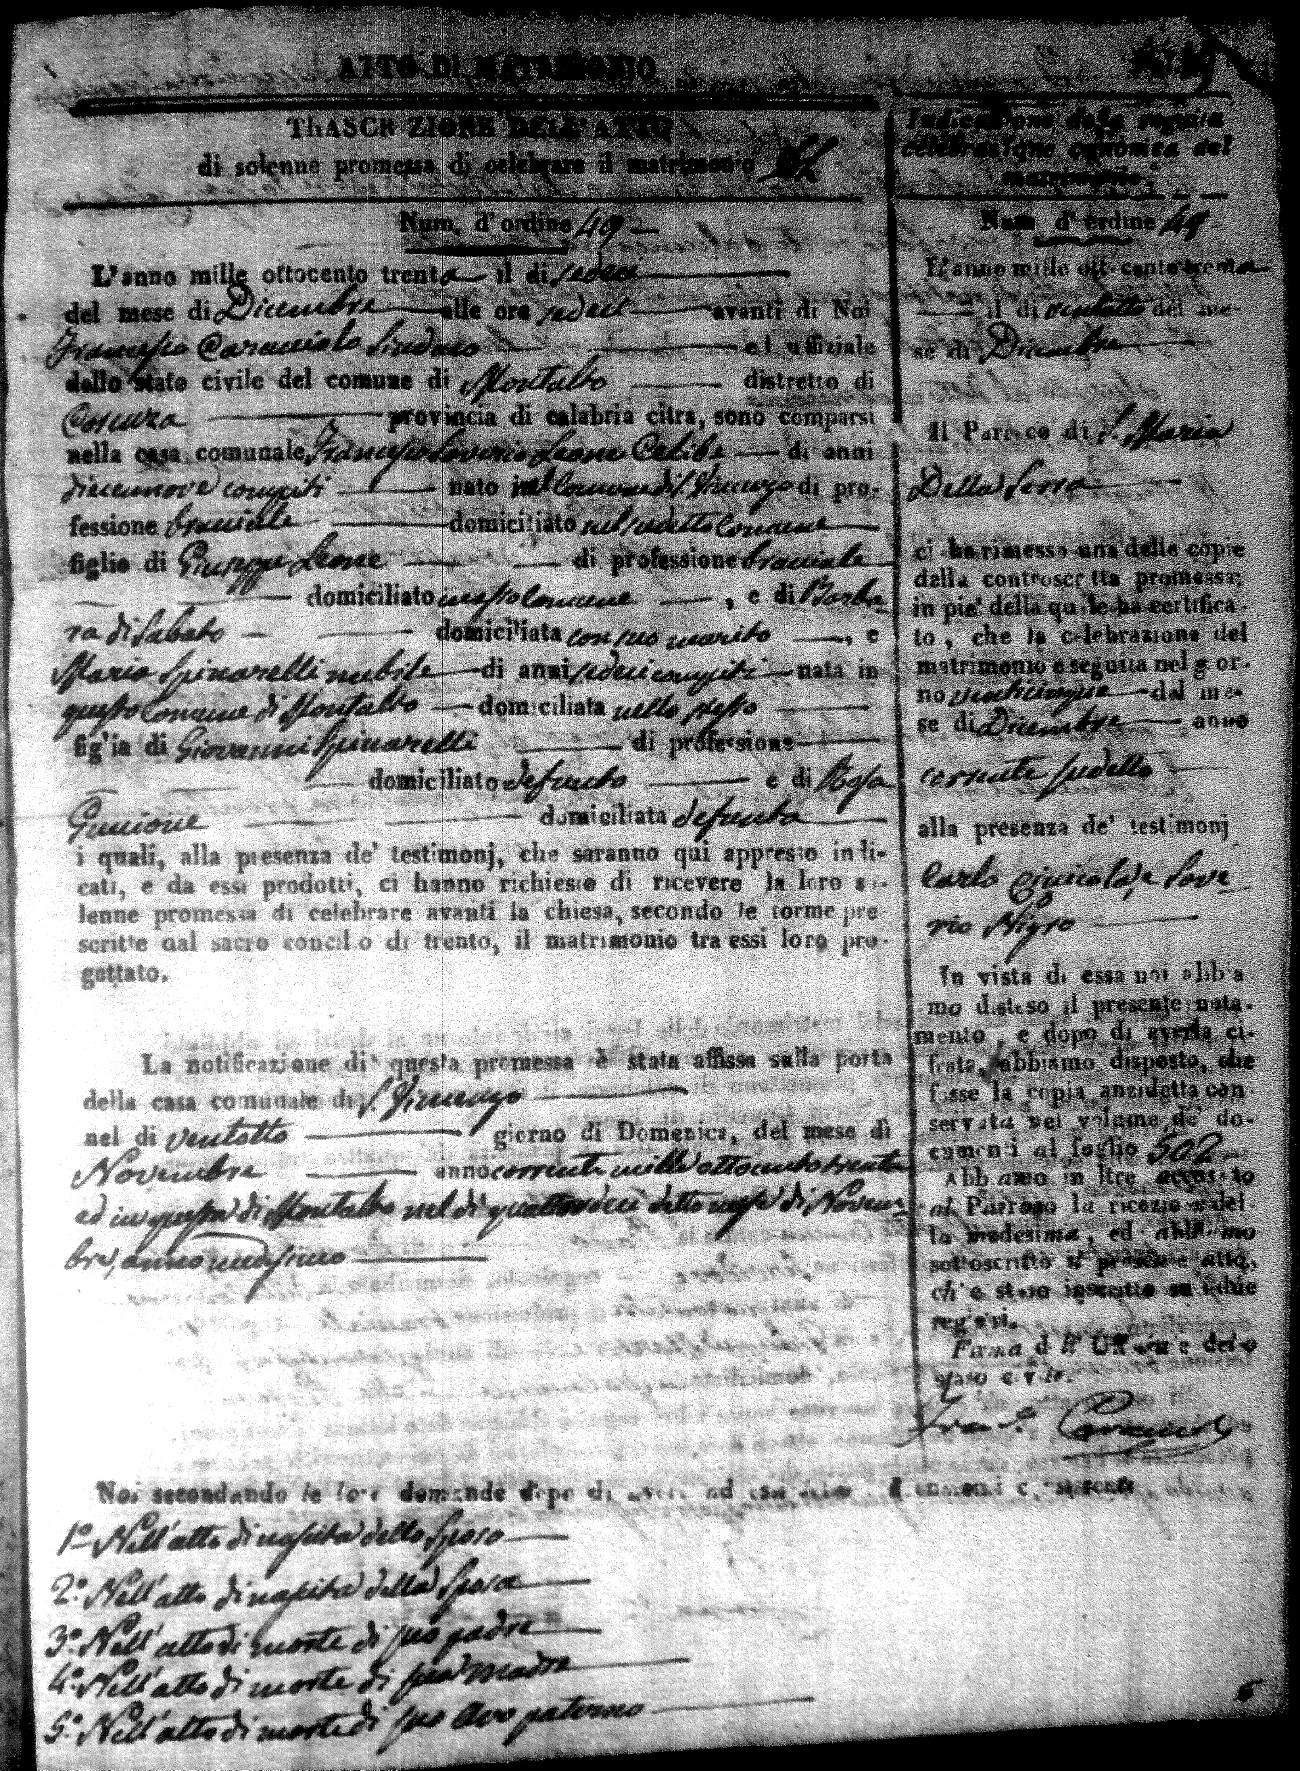 ATTO DI MATRIMONIO
TRASCRIZIONE DELL'ATTO
di solenne promessa di celebrare il matrimonio
Num. d'ordine 49
L'anno mille ottocento trenta il di sedeci
del mese di Dicembre alle ore sedeci avanti di Noi
Francesco Caracciolo Sindaco ed uffiziale
dello stato civile del comune di Montalto distretto di
Cosenza provincia di calabria citra, sono comparsi
nella casa comunale Francesco Saverio Leone Celibe di anni
diecennove compiti nato nel Comune di S. Vincenzo di pro-
fessione bracciale domiciliato nel sudetto Comune
figlio di Giuseppe Leone di professione bracciale
domiciliato in esso Comune, e di Barba
ra di Sabato domiciliata con suo marito, e
Maria Spinarelli nubile di anni sedeci compiti nata in
questo Comune di Montalto domiciliata nello stesso
figlia di Giovanni Spinarelli di professione
domiciliato defunto e di Rosa
domiciliata defunta
i quali, alla presenza de' testimonj, che saranno qui appresso indi-
cati, e da essi prodotti, ci hanno richiesto di ricevere la loro so-
lenne promessa di celebrare avanti la chiesa, secondo le forme pre
scritte dal sacro concilio di trento, il matrimonio tra essi loro pro-
gettato.
La notificazione di questa promessa è stata affissa sulla porta
della casa comunale di S. Vincenzo
nel di ventotto giorno di Domenica, del mese di
Novembre anno corrente mille ottocento trenta
ed in questa di Montalto nel di quattordeci detto mese di Novem-
bre, anno medesimo
Indicazione della seguita
celebrazione canonica del
matrimonio
Num. d'ordine 49
L'anno mille ottocento trenta
il di ventotto del me-
se di Dicembre
Il Parroco di S. Maria
Della Serra
ci ha rimesso una delle copie
della controscritta promessa;
in pie' della quale ha certifica-
to, che la celebrazione del
matrimonio è seguita nel gior-
no venticinque del me-
se di Dicembre anno
corrente sudetto
alla presenza de' testimonj
Carlo e Save
rio Nigro
In vista di essa noi abbia
mo disteso il presente nota-
mento, e dopo di averla ci-
frata, abbiamo disposto, che
fosse la copia anzidetta con
servata nel volume de' do-
cumenti al foglio 502
Abbiamo inoltre accusato
al Parroco la ricezione del
la medesima, ed abbiamo
sottoscritto il presente atto,
ch'è stato inscritto su i due
registri.
Firma dell'Uffiziale dello
stato civile.
Fran. Caracciolo
Noi secondando le loro domande dopo di avere ad essi letto i documenti consistenti
1.º Nell'atto di nascita dello Sposo
2.º Nell'atto di nascita della Sposa
3.º Nell'atto di morte di suo padre
4.º Nell'atto di morte di sua madre
5.º Nell'atto di morte di suo Avo paterno